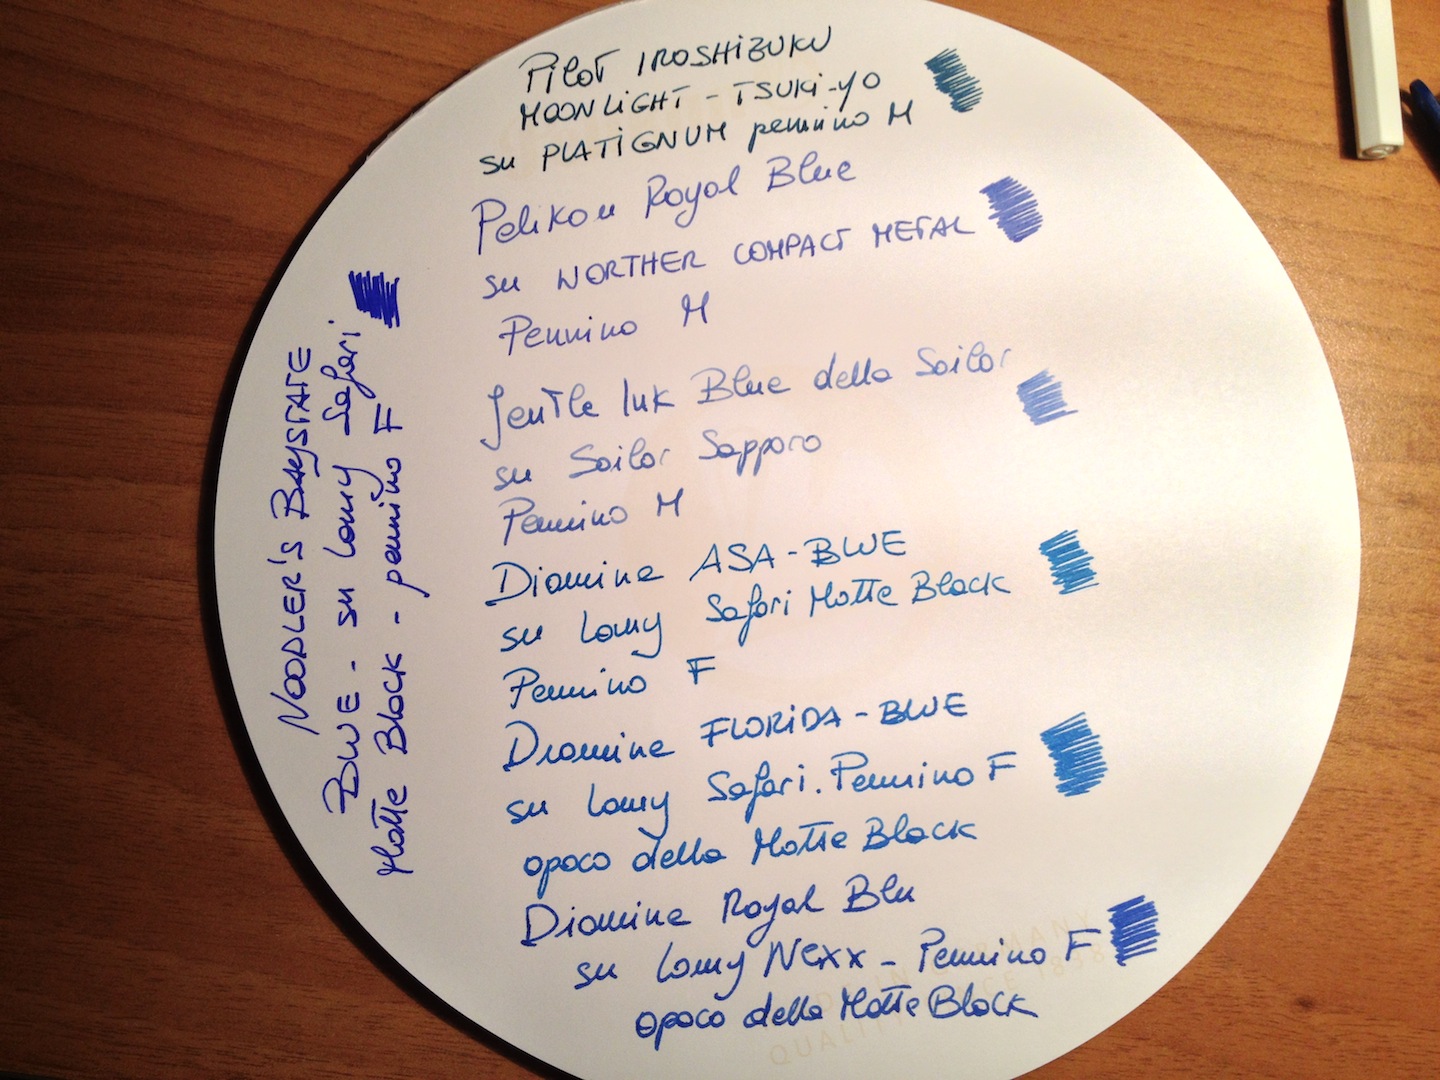 Pilot IROSHIZUKU
MOONLIGHT - TSUKI-YO
su PLATIGNUM pennino M
Pelikan Royal Blue
su WORTHER COMPACT METAL
Pennino M
Jentle Ink Blue della Sailor
su Sailor Sapporo
Pennino M
Diamine ASA-BLUE
su Lamy Safari Matte Black
Pennino F
Diamine FLORIDA-BLUE
su Lamy Safari. Pennino F
opaco della Matte Black
Diamine Royal Blu
su Lamy Nexx - Pennino F
opaco della Matte Black
NOODLER'S BAYSTATE
BLUE - su Lamy Safari
Matte Black - pennino F